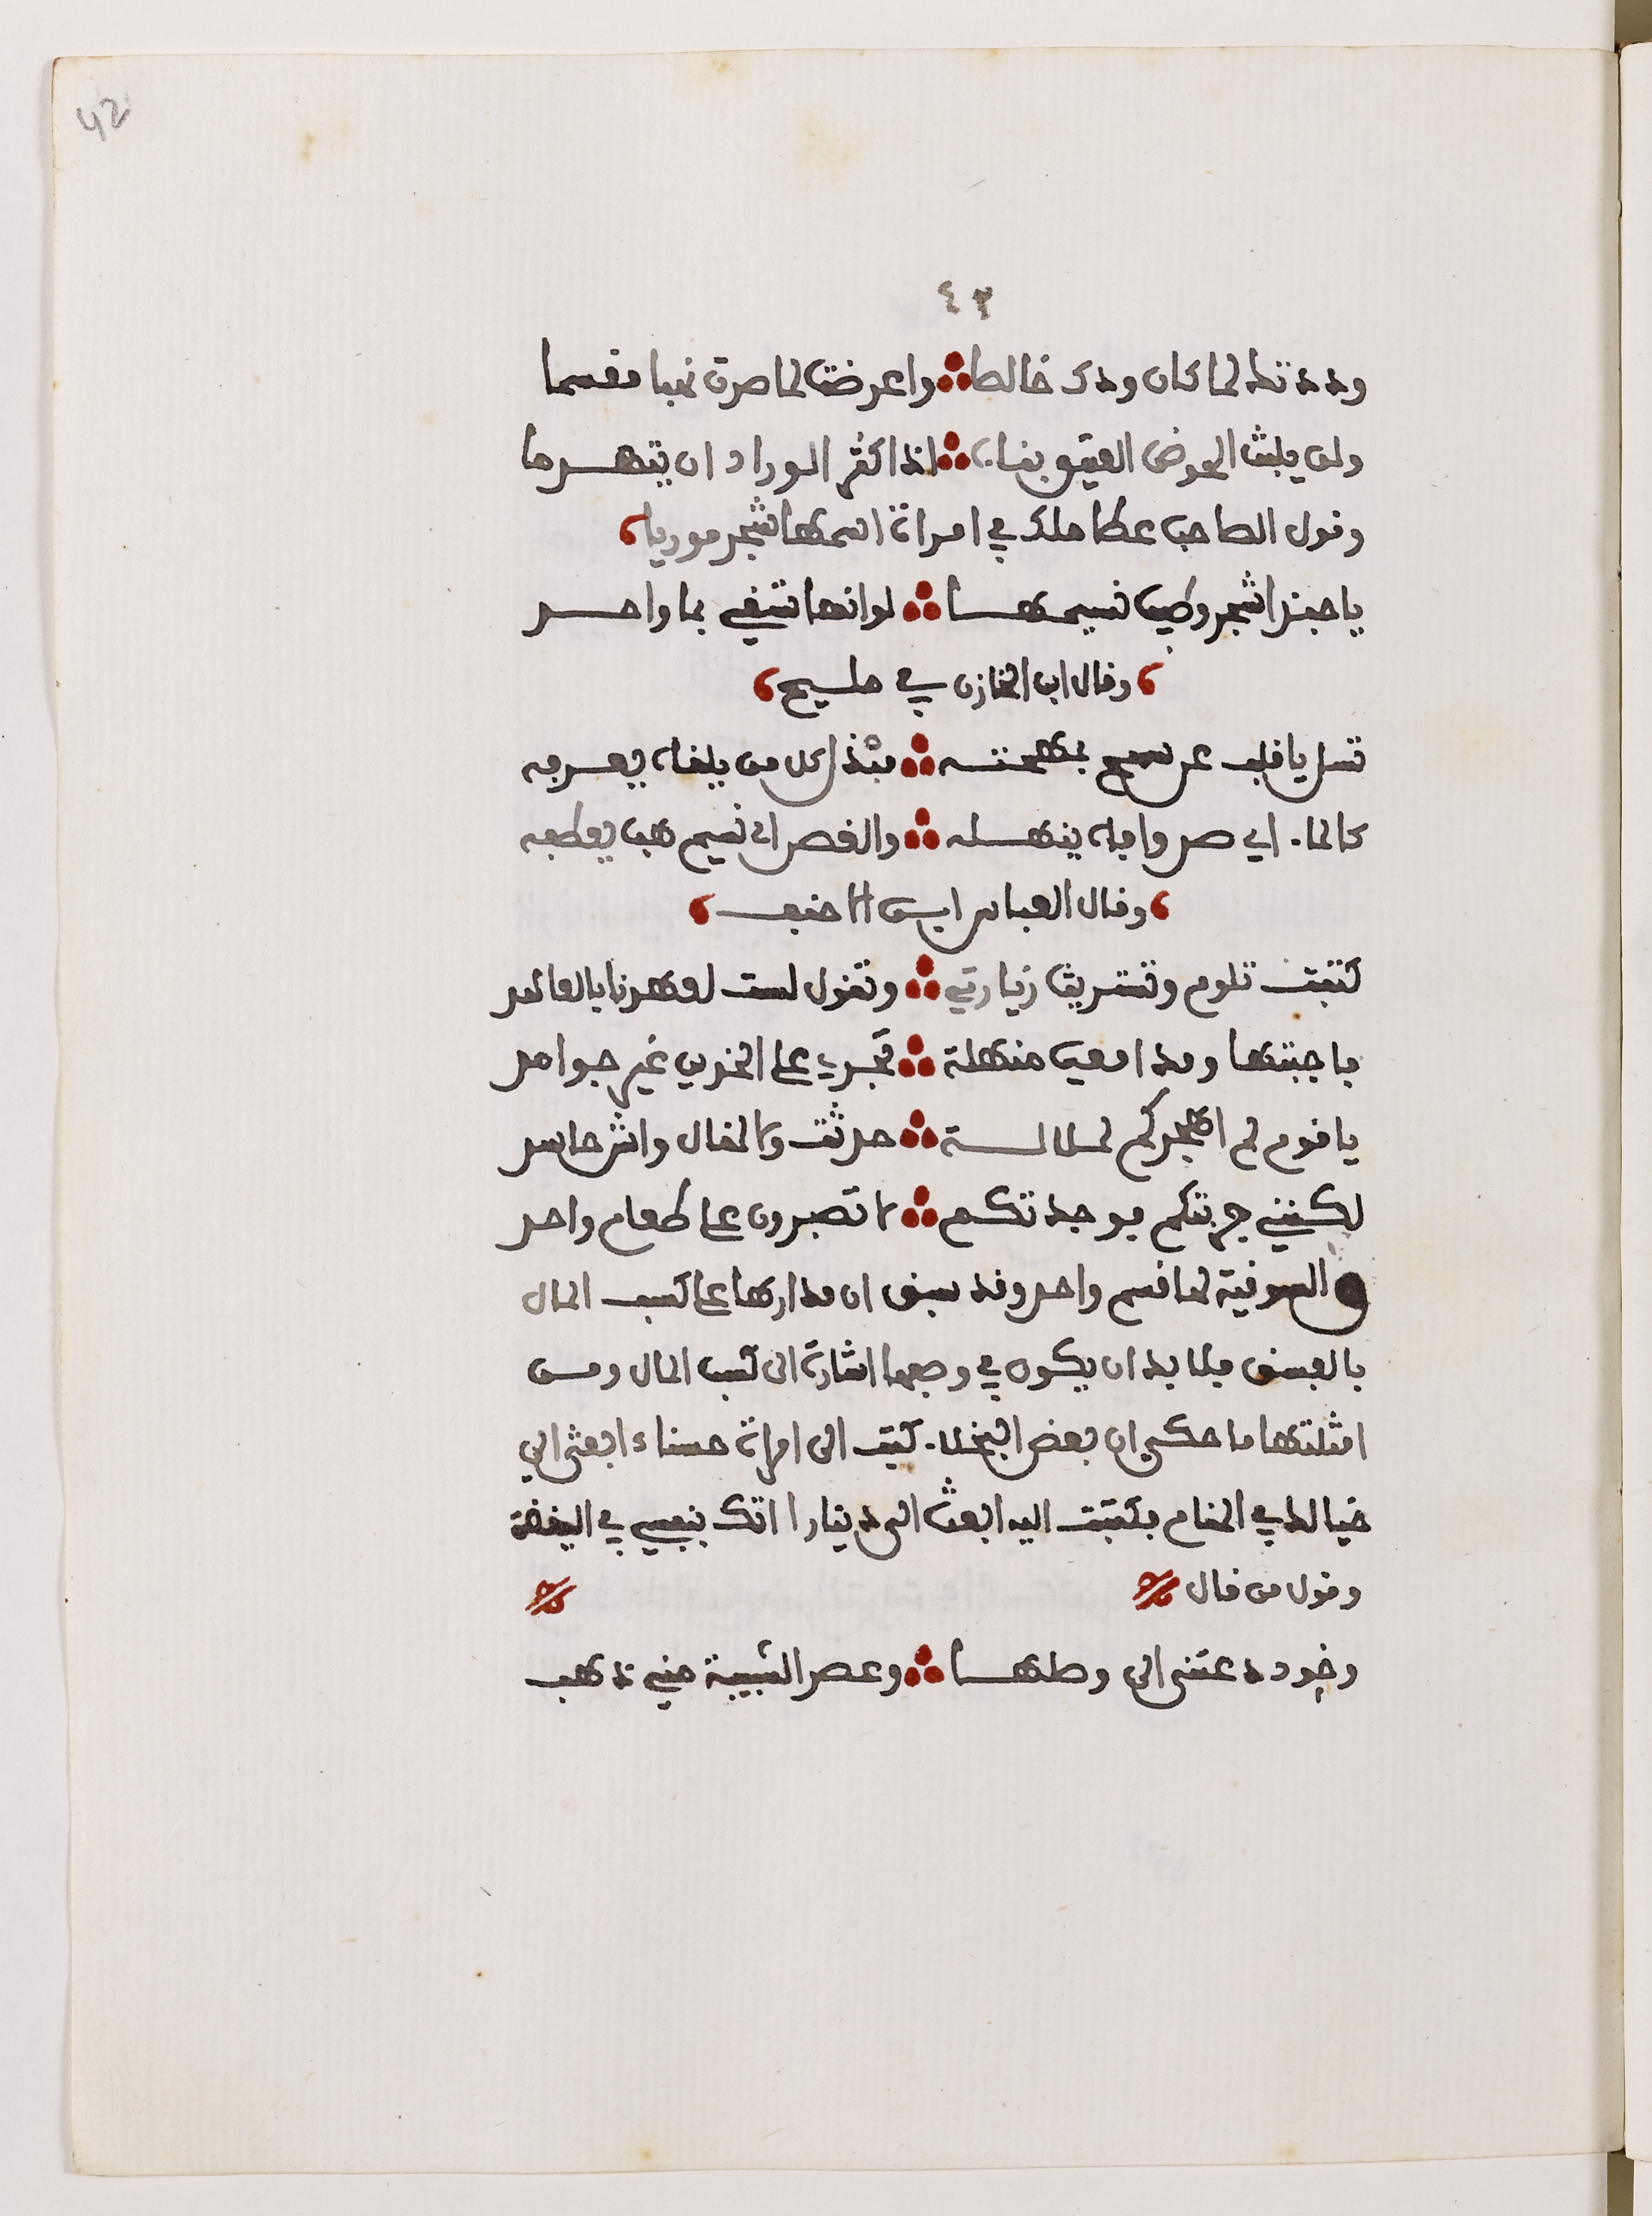 42
٤٣
وددتك لما كان ودك خالصا ∴ واعرضت لما صرت نهبا مقسما
ولن يلبث الحوض العتيق بناءه ∴ اذا كثر الوراد ان يتهدما
وقول الصاحب عطا ملك في امراة اسمها شجر موريا
يا حبذا شجر وطيب نسيمها ∴ لو انها تسقى بما واحد
وقال ابن الخازن في مليح
تسل يا قلب عن سمح بمهجته ∴ مبذل كل من يلقاه يعرفه
كالماء اي صد وافاه ينهله ∴ والغصن اي نسيم هب يعطفه
وقال العباس ابن الاحنف
كتبت تلوم وتستريث زيارتي ∴ وتقول لست لعهدنا بالعاهد
فاجبتها ومدامعي منهلة ∴ تجري على الخدين غير جوامد
يا فوم لم اهجركم لملالة ∴ حدثت ولا لمقال واش حاسد
لكنني جربتكم فوجدتكم ∴ لا تصبرون على طعام واحد
والصوفية لها قسم واحد وقد سبق ان مدارها على كسب المال
بالعشق فلا بد ان يكون في وصبها اشارة الى كسب المال ومن
امثلتها ما حكي ان بعض البخلاء كتب الى امراة حسناء ابعثي الي
خيالك في المنام فكتبت اليه ابعث الي دينارا اتك بنفسي في اليقظة
وقول من قال
وخود دعتني الى وصلها ∴ وعصر الشبيبة مني ذهب